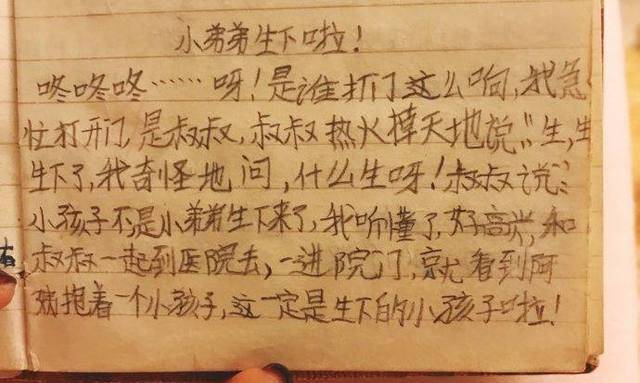 小弟弟生下啦！
咚咚咚……呀！是谁打门这么响，我急
忙打开门，是叔叔，叔叔热火掉天地说："生，生
生下了，我奇怪地问，什么生呀！叔叔说："
小孩子不是小弟弟生下来了，我听懂了，好高兴，和
叔叔一起到医院去，一进院门，就看到阿
姨抱着一个小孩子，这一定是生下的小孩子啦！
有